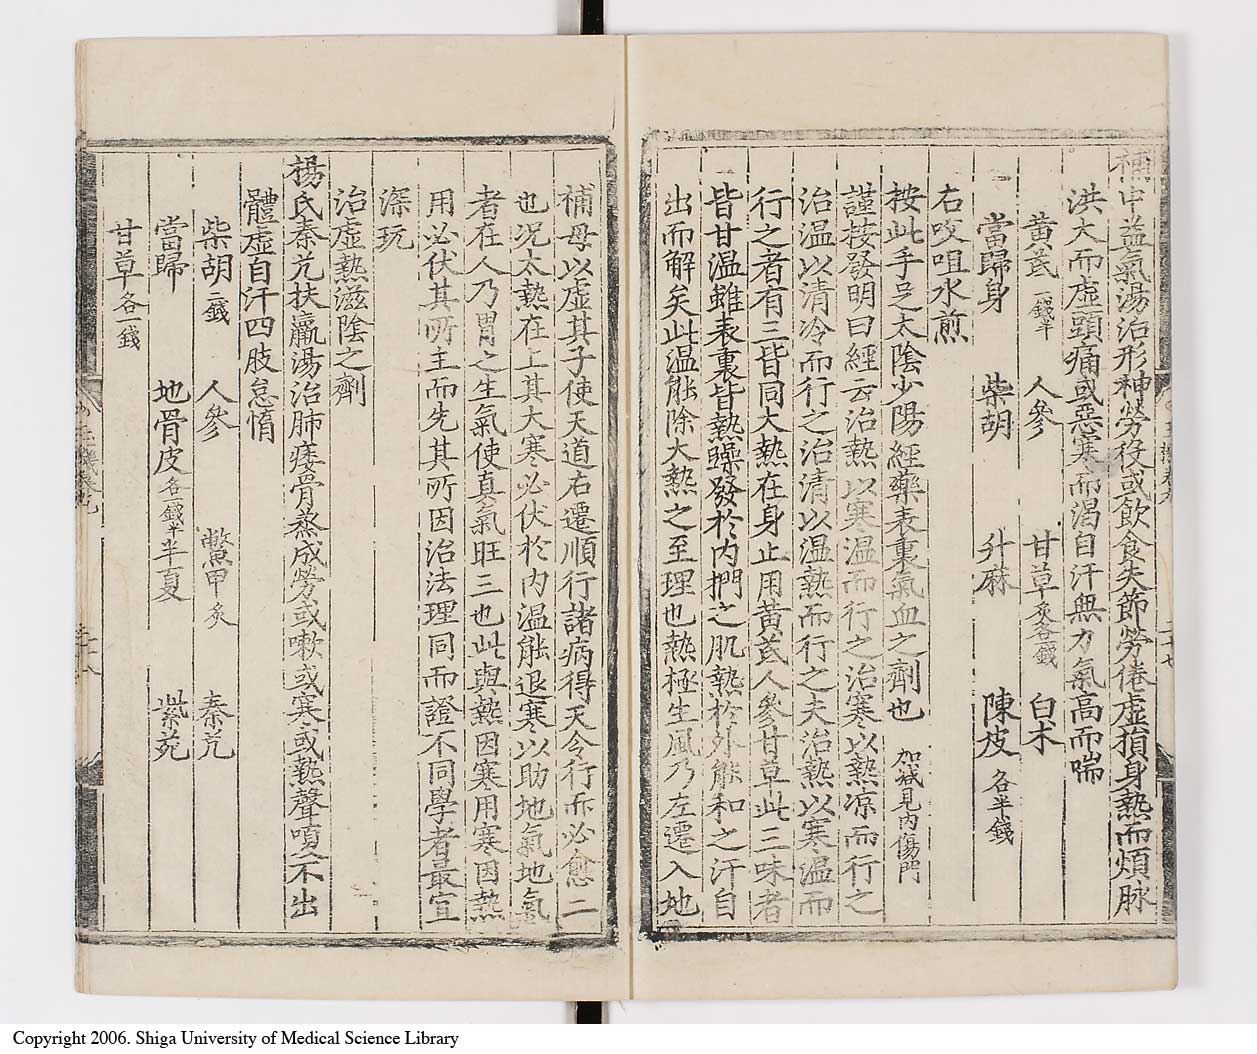 補中益氣湯治形神勞役或飲食失節勞倦虛損身熱而煩脉
洪大而虛頭痛或惡寒而渴自汗無力氣高而喘
黃芪一錢半 人參 甘草炙各一錢 白朮
當歸身 柴胡 升麻 陳皮各半錢
右㕮咀水煎
按此手足太陰少陽經藥表裏氣血之劑也 加减見內傷門
謹按發明曰經云治熱以寒溫而行之治寒以熱凉而行之
治溫以清冷而行之治清以溫熱而行之夫治熱以寒溫而
行之者有三皆同大熱在身止用黃芪人參甘草此三味者
皆甘溫雖表裏皆熱躁發於內捫之肌熱於外能和之汗自
出而解矣此溫能除大熱之至理也熱極生風乃左遷入地
補母以虛其子使天道右遷順行諸病得天令行而必愈二
也况大熱在上其大寒必伏於內溫能退寒以助地氣地氣
者在人乃胃之生氣使真氣旺三也此與熱因寒用寒因熱
用必伏其所主而先其所因治法理同而證不同學者最宜
深玩
治虛熱滋陰之劑
楊氏秦艽扶羸湯治肺痿骨蒸成勞或嗽或寒或熱聲嗄不出
體虛自汗四肢怠惰
柴胡二錢 人參 鱉甲炙 秦艽
當歸 地骨皮各一錢半 半夏 紫苑
甘草各一錢